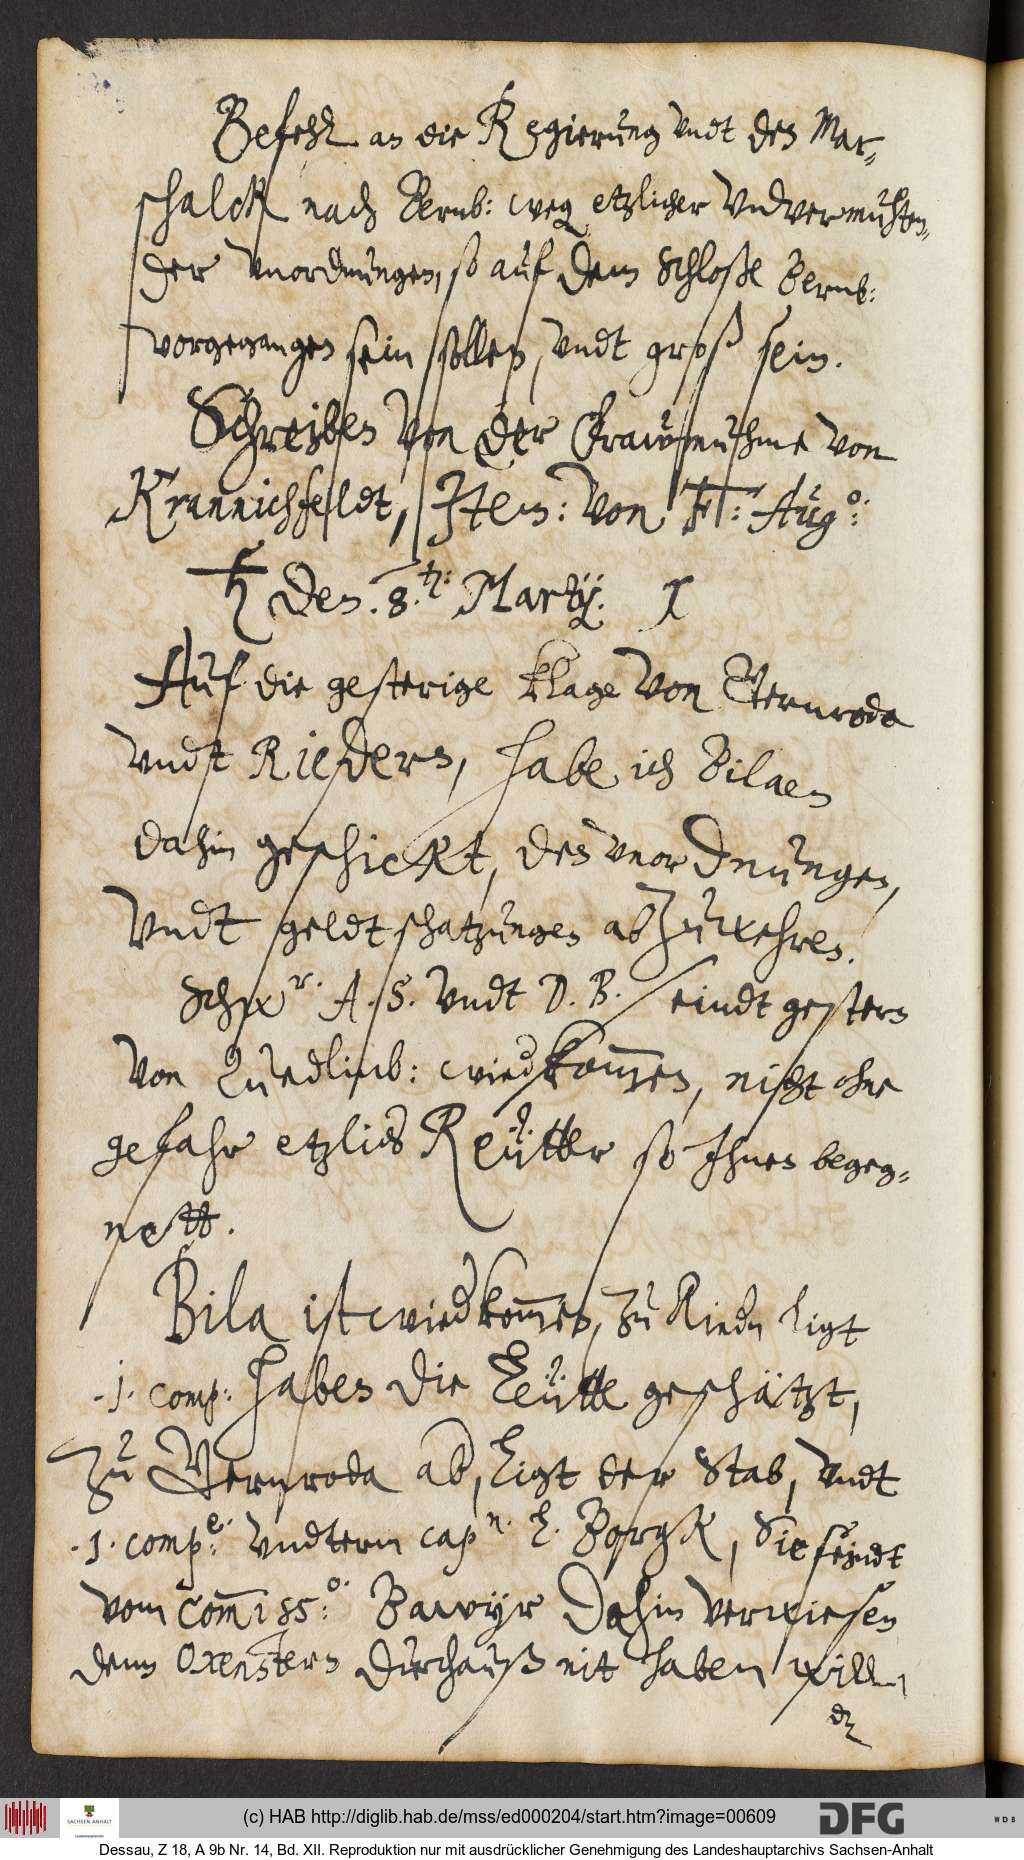 Befehl an die Regierung vndt den Mar-
schalck nach Bernb: weg etzlicher vndvermuhten-
der vnordnungen, so auf dem Schloße Bernb:
vorgegangen sein sollen, vndt groß sein.
Schreiben von der Fraw muhme von
Krannichfeldt, Item: von F: Aug⁰:
♄ den. 8.ᵗᵉⁿ: Martij.
Auf die gesterige klage von Gernroda
vndt Riedern, habe ich Bilaen
dahin geschickt, den vnordnungen,
vndt geldt schatzungen abzuwehren.
Schwʳ. A. S. vndt D. B. seindt gestern
von Quedlinb: wiedkom̅en, nicht ohne
gefahr etzlicher Reütter so Ihnen begeg-
nett.
Bila ist wiedkom̅en, zu Riedn ligt
.1. comp: haben die Leütte geschätzt,
Zu Gernroda ab, ligt der Stab, vndt
.1. compᵉ: vndterm capⁿ. L. Borgk, Sie seindt
vom Com̅iss⁰: Bawyr dahin verwiesen
denn Oxenstern durchauß nit haben willn,
dz
(c) HAB http://diglib.hab.de/mss/ed000204/start.htm?image=00609
SACHSEN-ANHALT
Landeshauptarchiv
DFG
WDB
Dessau, Z 18, A 9b Nr. 14, Bd. XII. Reproduktion nur mit ausdrücklicher Genehmigung des Landeshauptarchivs Sachsen-Anhalt